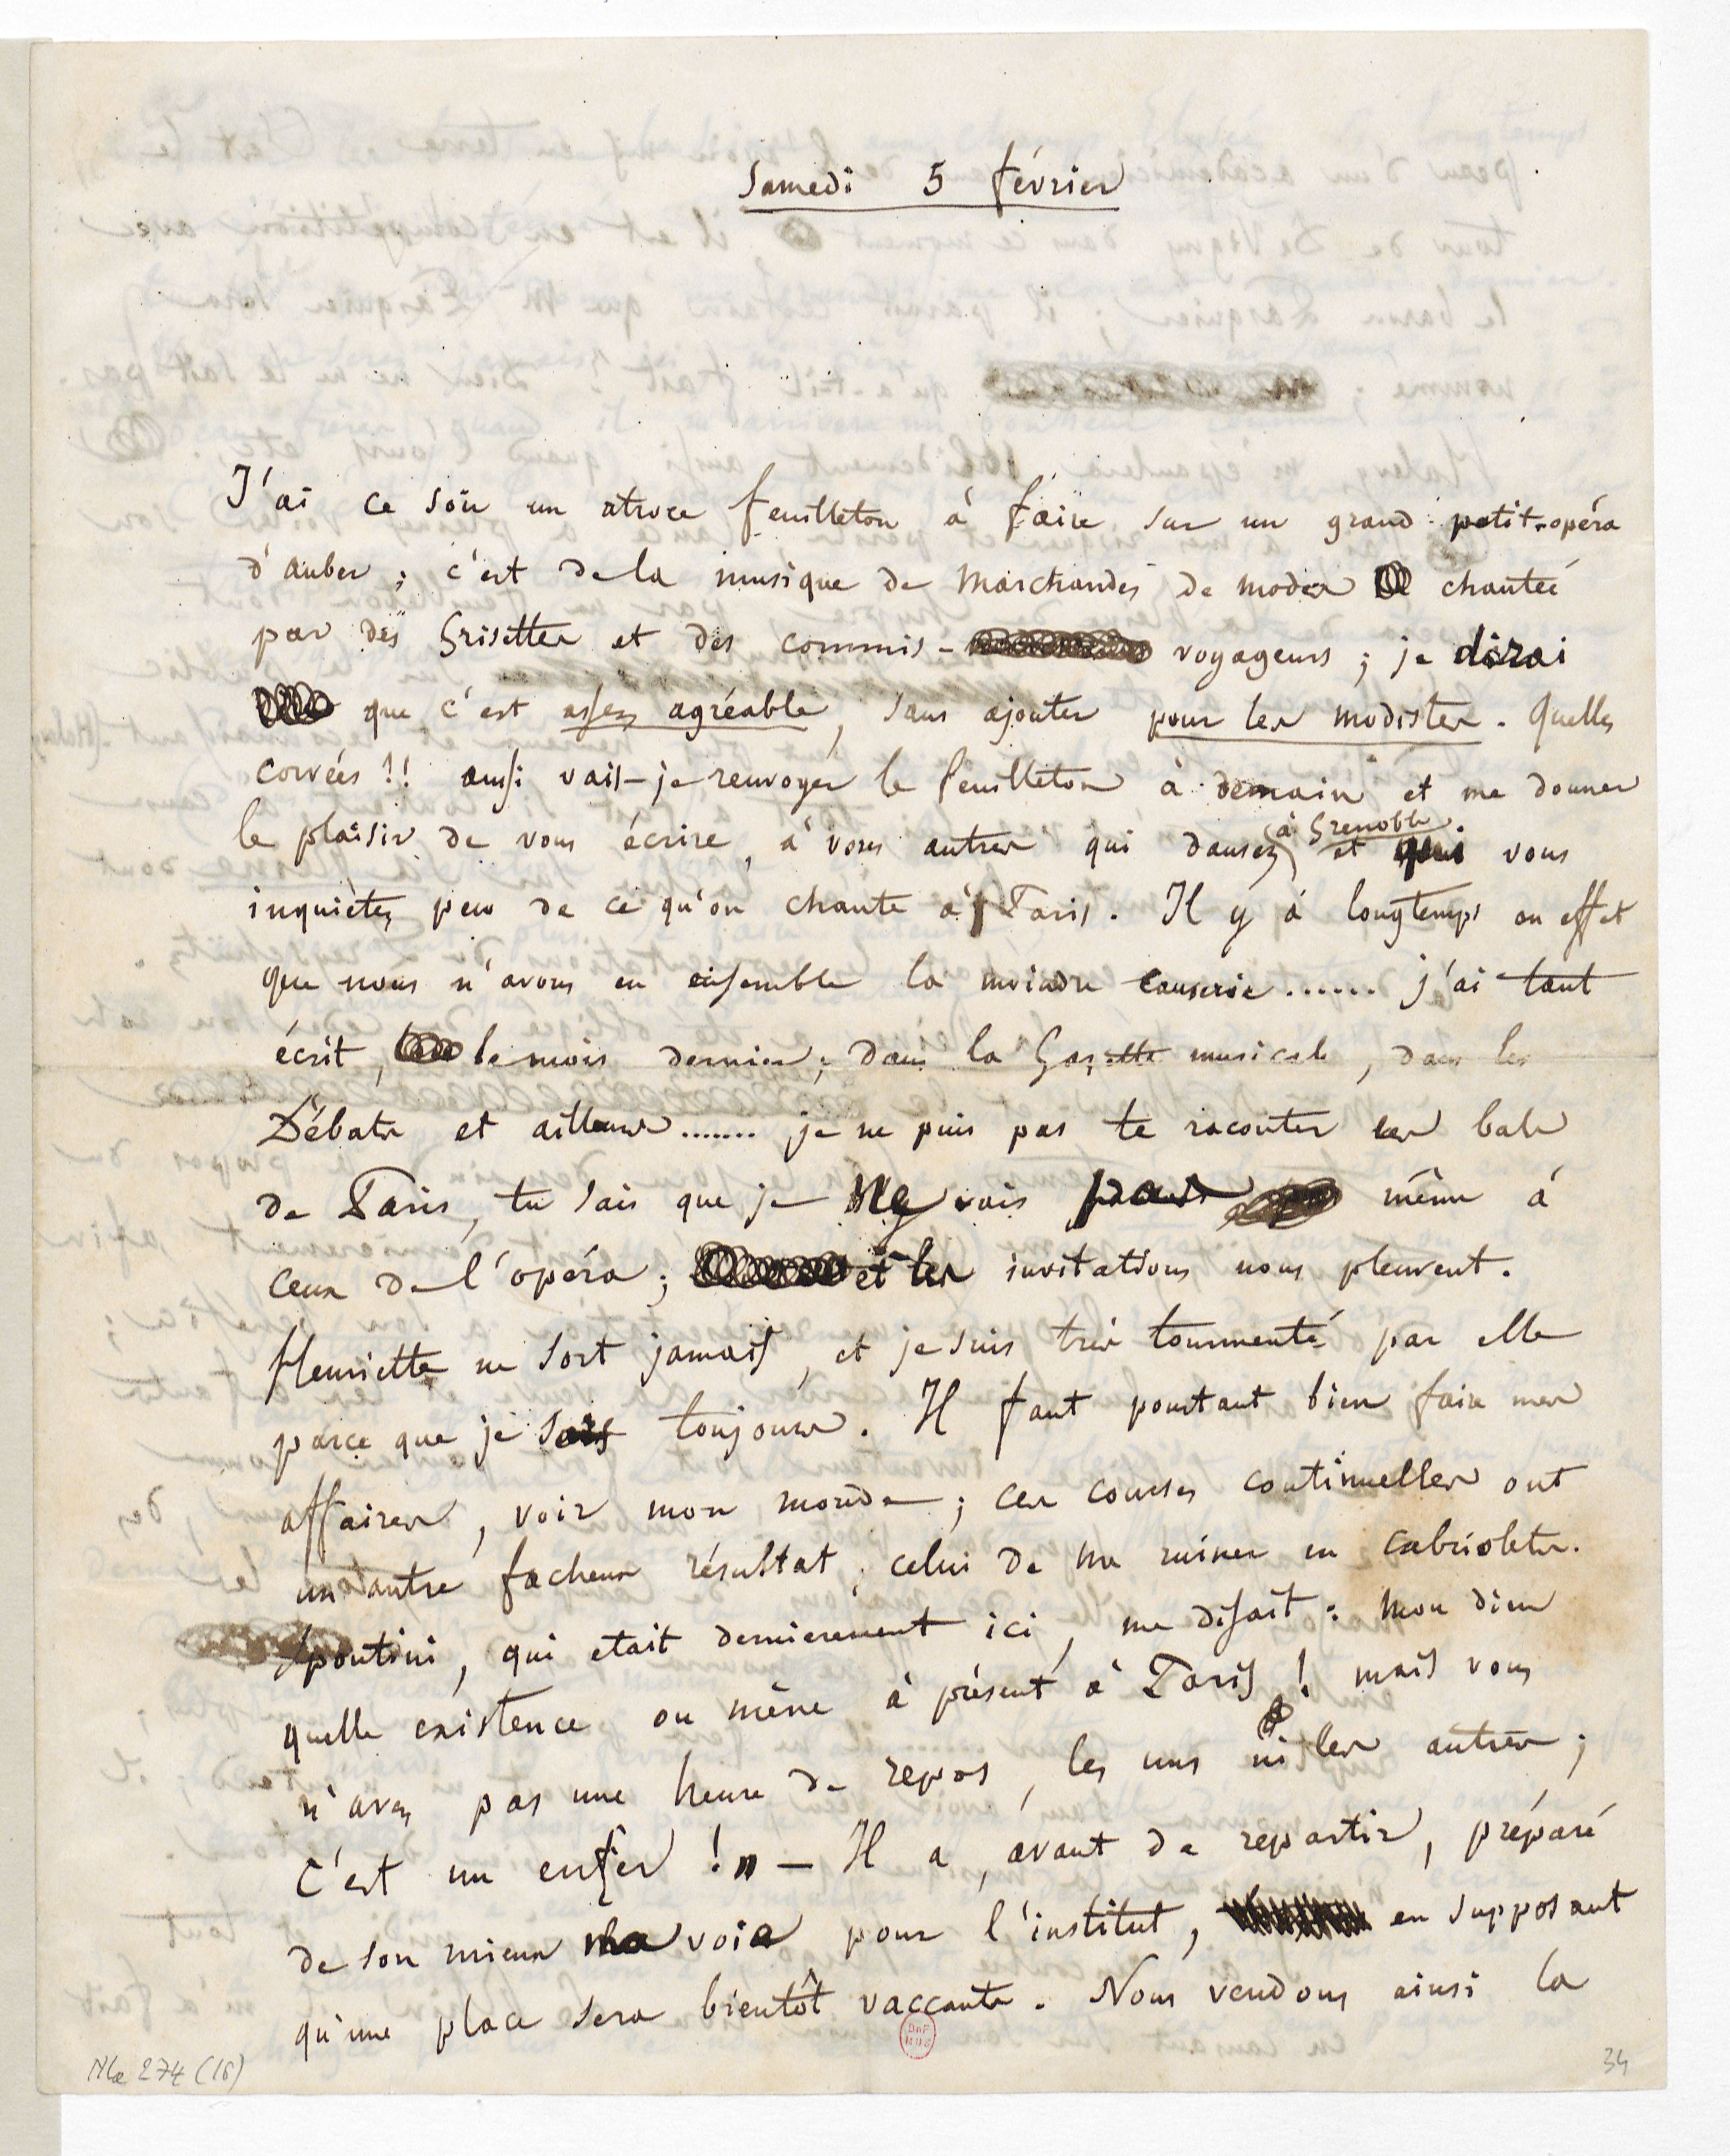 Samedi 5 février
J'ai ce soir un atroce feuilleton à faire sur un grand petit-opéra
d'auber ; c'est de la musique de marchandes de modes chantée
par des Grisettes et des commis- voyageurs ; je dirai
que c'est assez agréable, sans ajouter pour les modistes. Quelles
corvées !! aussi vais-je renvoyer le feuilleton à demain et me donner
à Grenoble
le plaisir de vous écrire, à vous autres qui dansez et qui vous
inquiètez peu de ce qu'on chante à Paris. Il y à longtemps en effet
que nous n'avons eu ensemble la moindre causerie...... j'ai tant
écrit, le mois dernier, dans la Gazette musicale, dans les
Débats et ailleurs....... je ne puis pas te raconter les bals
de Paris, tu sais que je ne vais pas même à
ceux de l'opéra ; et les invitations nous pleuvent.
Henriette ne sort jamais, et je suis très tourmenté par elle
parce que je sors toujours. Il faut pourtant bien faire mes
affaires, voir mon monde ; ces courses continuelles ont
un autre facheux résultat, celui de me ruiner en cabriolets.
Spontini, qui etait dernierement ici, me disait : mon dieu
quelle existence on mène à présent à Paris ! mais vous
n'avez pas une heure de repos, les uns ni les autres ;
c'est un enfer ! » — Il a, avant de repartir, préparé
de son mieux ma voie pour l'institut, en supposant
qu'une place sera bientôt vaccante. Nous vendons ainsi la
NLa 274 (18)
34